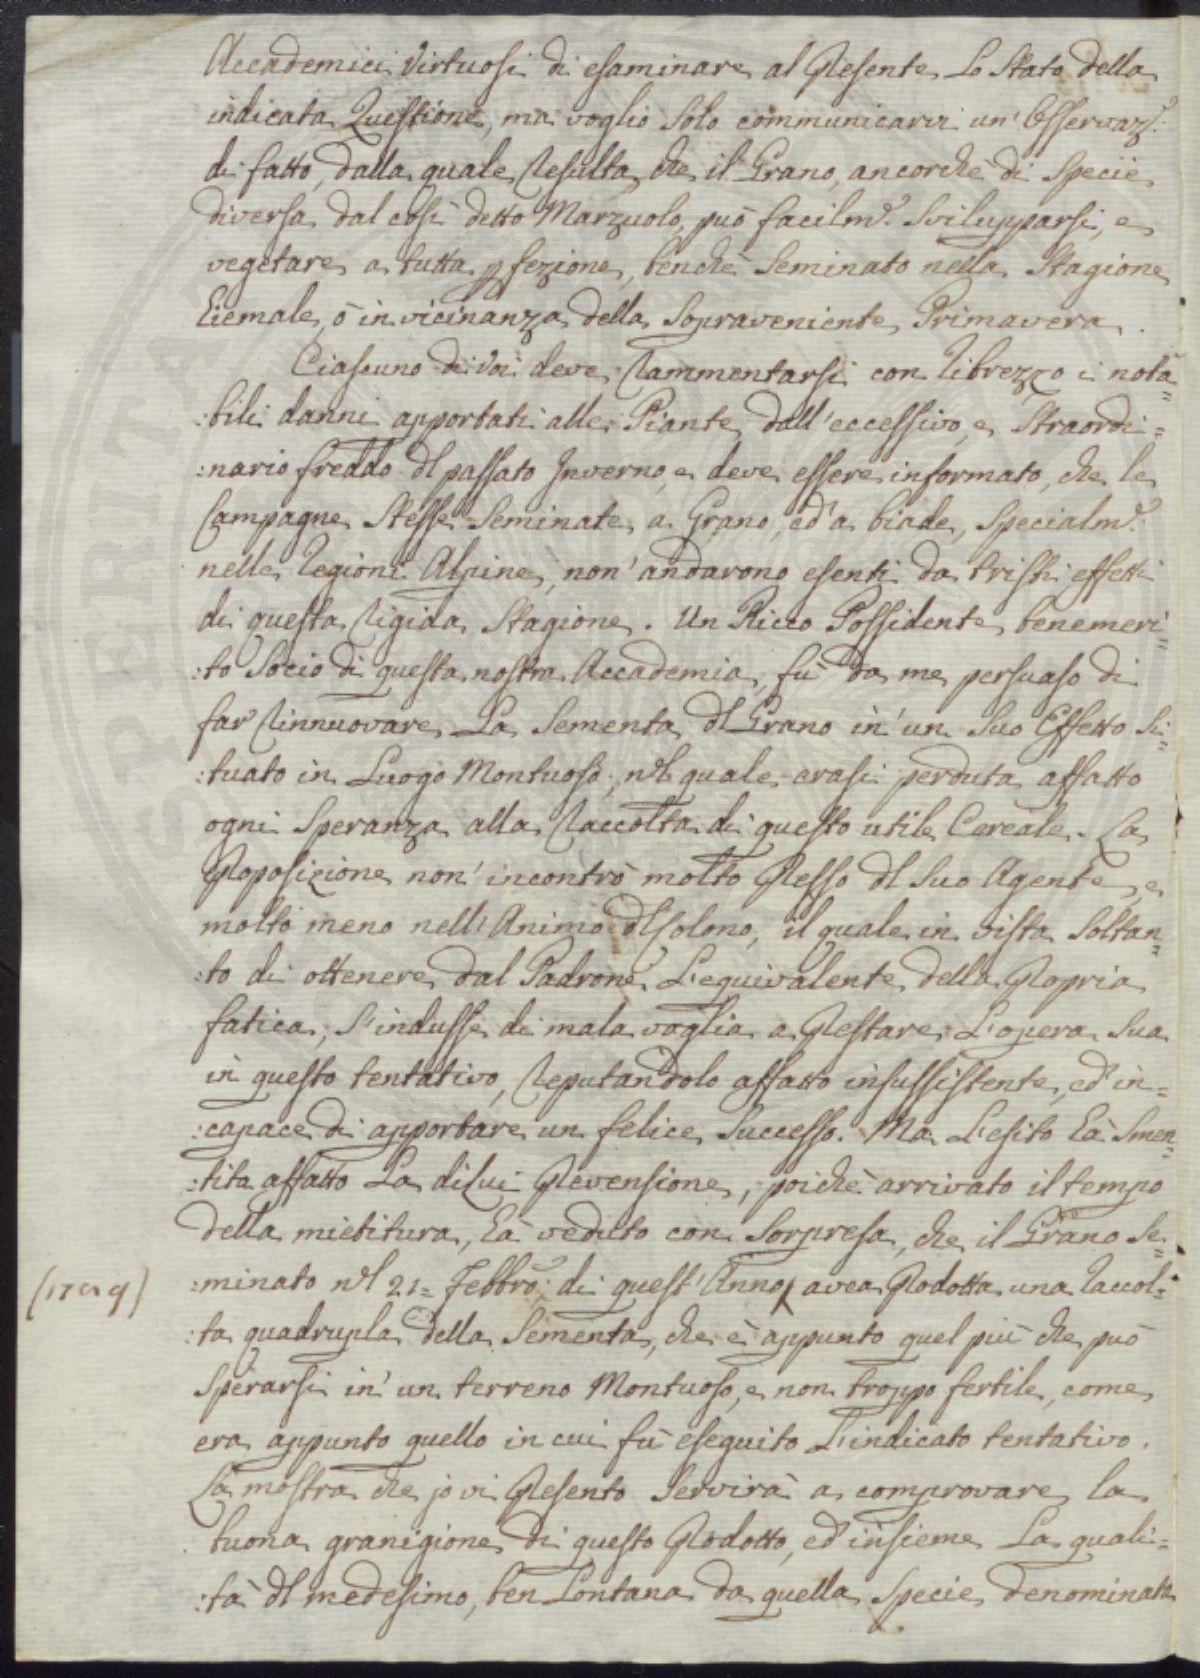 Accademici Virtuosi di esaminare al Presente Lo Stato della
indicata Questione, ma voglio solo communicarvi un' Osservaz.e
di fatto, dalla quale Resulta, che il Grano, ancorchè di Specie
diversa dal così detto Marzuolo, può facilm.e Svilupparsi, e
vegetare a tutta pfezione, benchè Seminato nella Stagione
Eiemale, ò in vicinanza della Sopraveniente Primavera.
Ciascuno di Voi deve Rammentarsi con Ribrezzo i nota=
:bili danni apportati alle Piante dall'eccessivo, e Straordi=
:nario freddo dl passato Inverno, e deve essere informato, che le
Campagne Stesse Seminate a Grano, ed' a biade, Specialm.e
nelle Regioni Alpine, non' andarono esenti da tristi effetti
di questa Rigida Stagione. Un Ricco Possidente, benemeri=
:to Socio di questa nostra Accademia, fù da me persuaso di
far Rinnuovare La Sementa dl Grano in' un Suo Effetto Si=
:tuato in Luogo Montuoso, nel quale erasi perduta affatto
ogni Speranza alla Raccolta di questo utile Cereale. La
Proposizione non' incontrò molto Presso dl Suo Agente, e
molto meno nell'Animo dl Colono, il quale in vista Soltan=
:to di ottenere dal Padrone L'equivalente della Propria
fatica, S'indusse di mala voglia a Prestare L'opera Sua
in questo tentativo, Reputandolo affatto insussistente, ed' in=
:capace di apportare un felice Successo. Ma L'esito hà Smen=
:tita affatto La di Lui Prevensione, poichè arrivato il tempo
della mietitura, hà veduto con Sorpresa, che il Grano Se=
(1789) :minato nel 21= Febbro: di quest'Anno, avea Prodotta una Raccol=
:ta quadrupla della Sementa, che è appunto quel più che può
Sperarsi in' un terreno Montuoso, e non troppo fertile, come
era appunto quello in cui fù eseguito L'indicato tentativo.
La mostra che jo vi Presento Servirà a comprovare la
buona granigione di questo Prodotto, ed' insieme La quali=
:tà dl medesimo, ben Lontana da quella Specie denominata